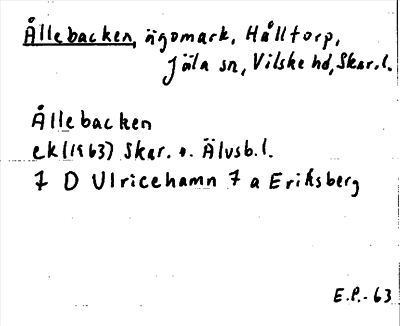 Ållebacken, ägomark, Hålltorp,
Jäla sn, Vilske hd, Skar. l.
Ållebacken
ek (1963) Skar. o. Älvsb. l.
7 D Ulricehamn 7 a Eriksberg
E.P.-63